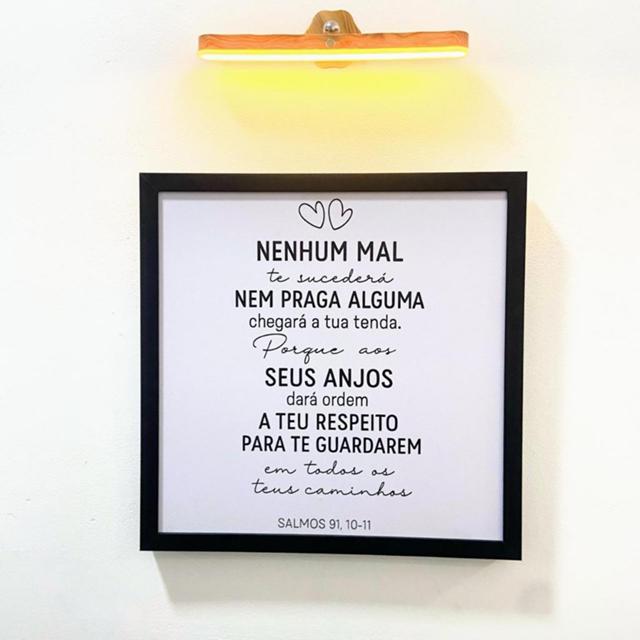 NENHUM MAL
te sucederá
NEM PRAGA ALGUMA
chegará a tua tenda.
Porque aos
SEUS ANJOS
dará ordem
A TEU RESPEITO
PARA TE GUARDAREM
em todos os
teus caminhos
SALMOS 91, 10-11